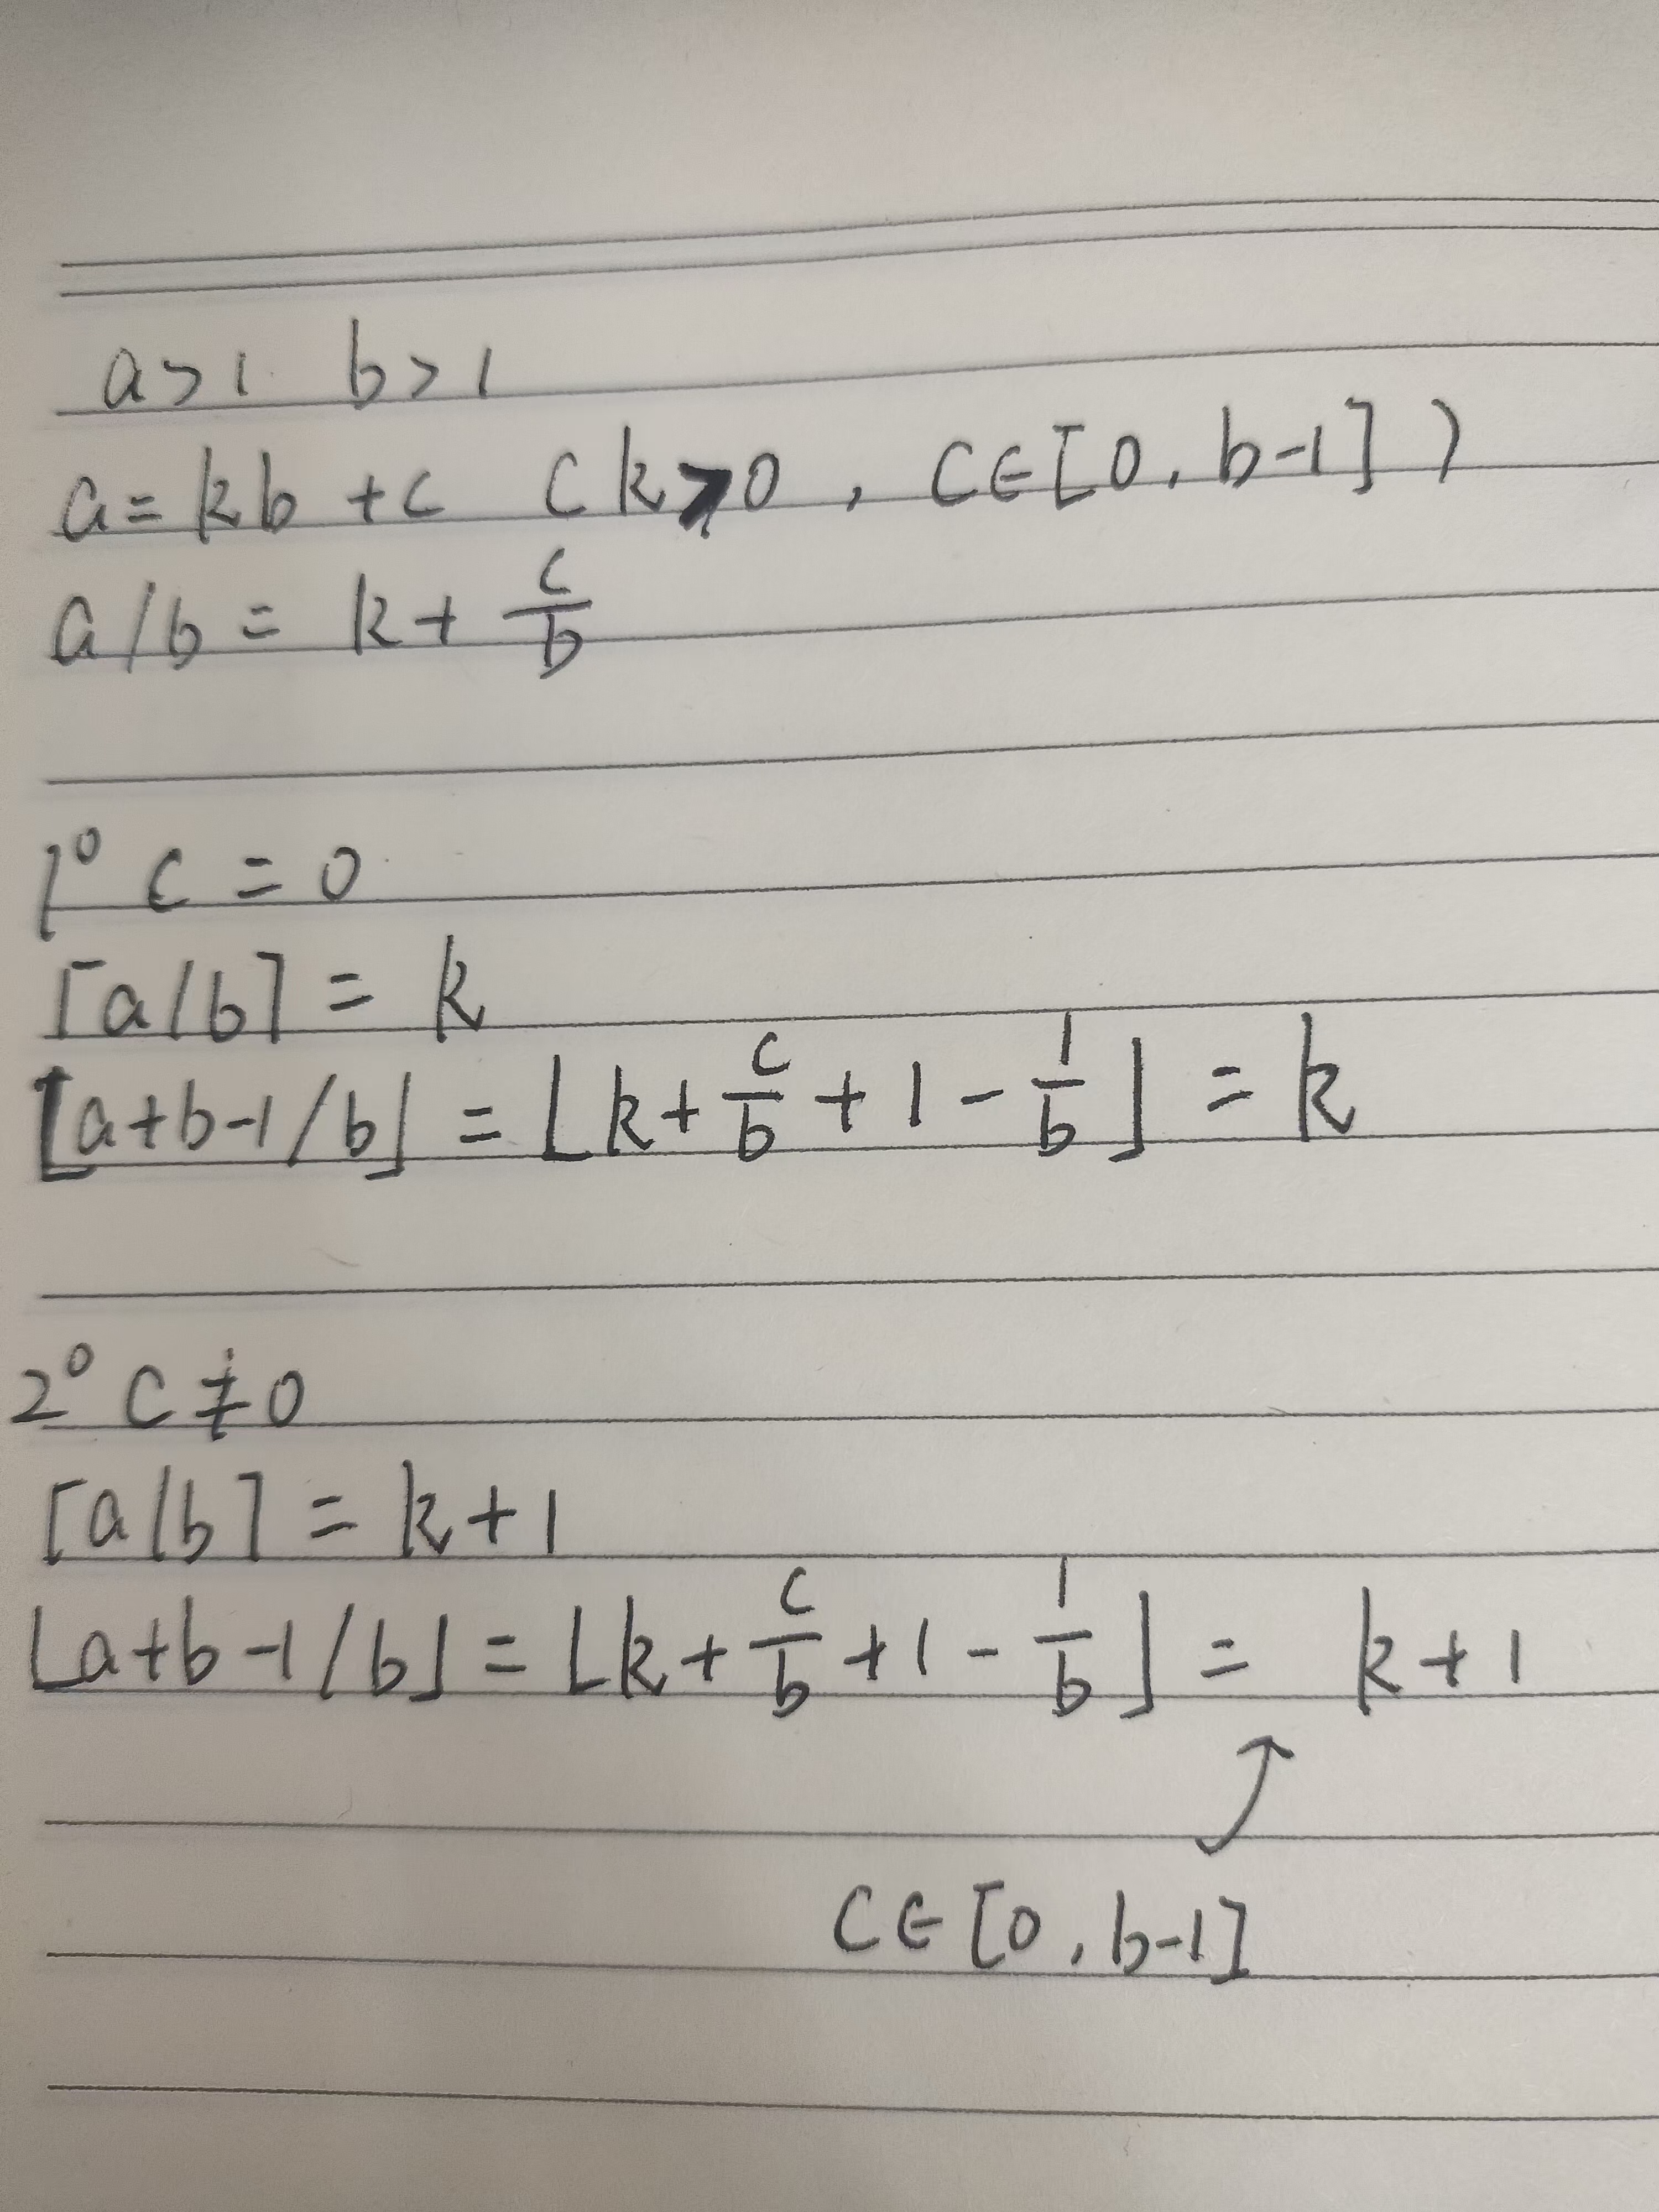 a>1 b>1
a=kb+c (k⩾0, c∈[0,b-1])
a/b = k+ c/b
1° c=0
⌈a/b⌉ = k
⌊a+b-1/b⌋ = ⌊k+ c/b +1- 1/b⌋ = k
2° c≠0
⌈a/b⌉ = k+1
⌊a+b-1/b⌋ = ⌊k+ c/b +1- 1/b⌋ = k+1
c∈[0,b-1]